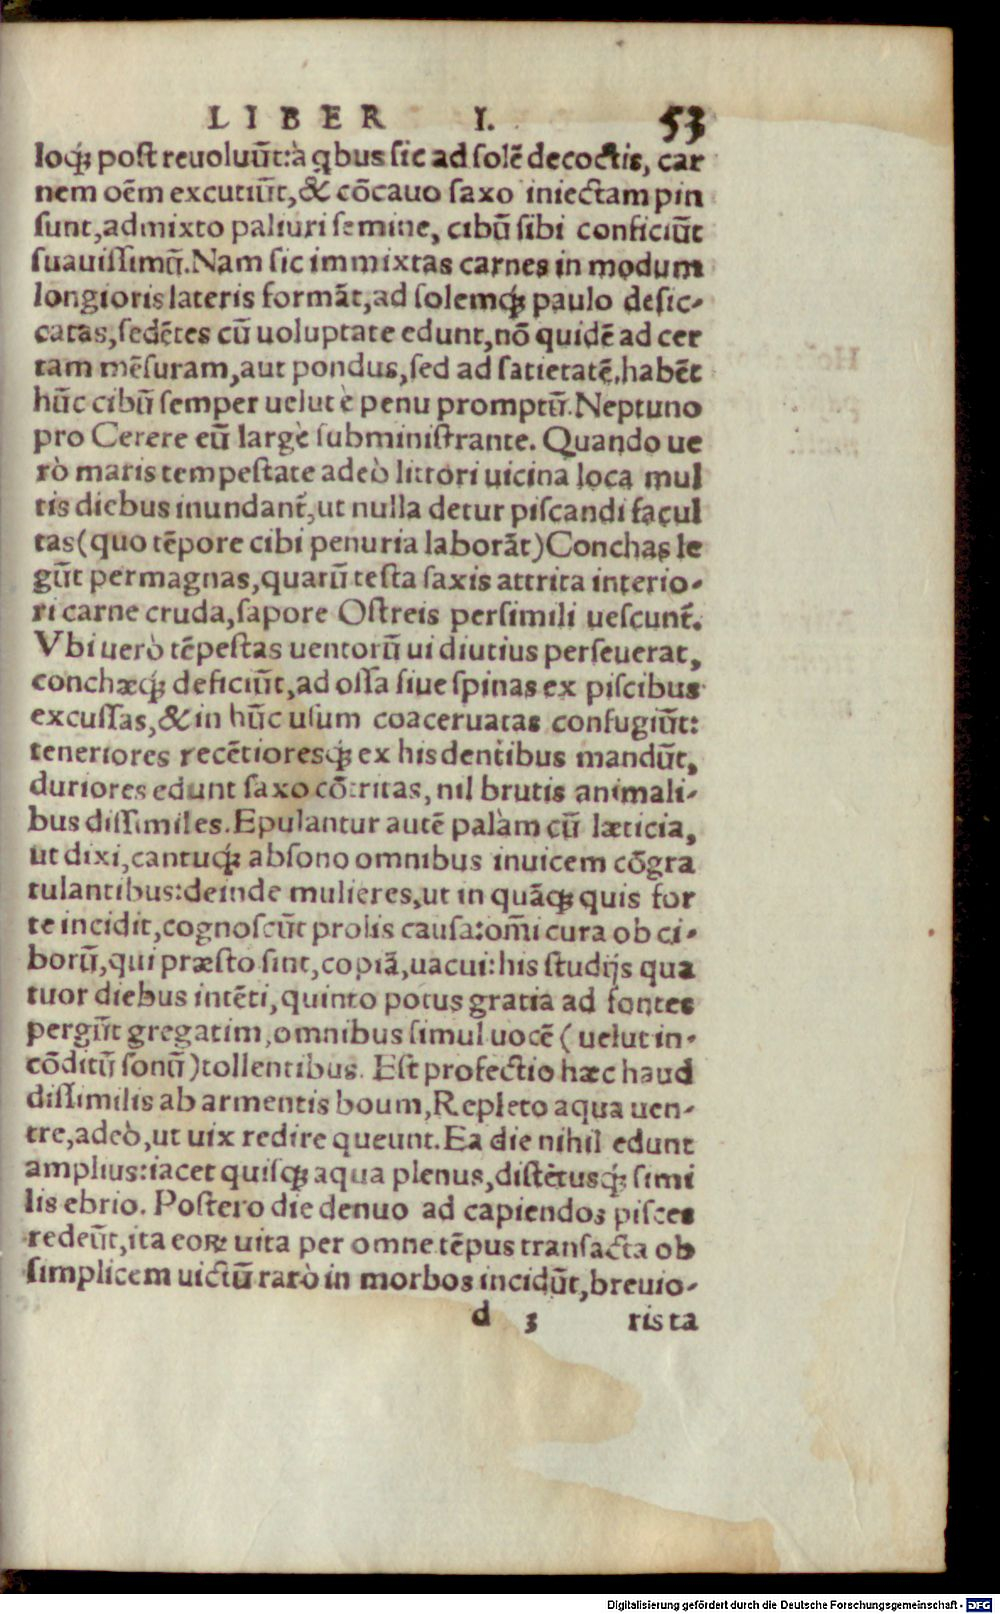 LIBER I. 53
loq́ꝫ post reuoluūt: à ꝗbus sic ad solē decoctis, car
nem oēm excutiūt, & cōcauo saxo iniectam pin
sunt, admixto paliuri semine, cibū sibi conficiūt
suauissimū. Nam sic immixtas carnes in modum
longioris lateris formāt, ad solemq́ꝫ paulo desic-
catas, sedētes cū uoluptate edunt, nō quidē ad cer
tam mēsuram, aut pondus, sed ad satietatē, habēt
hūc cibū semper uelut è penu promptū. Neptuno
pro Cerere eū largè subministrante. Quando ue
rò maris tempestate adeò littori uicina loca mul
tis diebus inundant̄, ut nulla detur piscandi facul
tas (quo tēpore cibi penuria laborāt) Conchas le
gūt permagnas, quarū testa saxis attrita interio-
ri carne cruda, sapore Ostreis persimili uescunt̄.
Vbi uerò tēpestas uentorū ui diutius perseuerat,
conchæq́ꝫ deficiūt, ad ossa siue spinas ex piscibus
excussas, & in hūc usum coaceruatas confugiūt:
teneriores recētioresq́ꝫ ex his dentibus mandūt,
duriores edunt saxo cōtritas, nil brutis animali-
bus dissimiles. Epulantur autē palàm cū læticia,
ut dixi, cantuq́ꝫ absono omnibus inuicem cōgra
tulantibus: deinde mulieres, ut in quāq́ꝫ quis for
te incidit, cognoscūt prolis causa: om̄i cura ob ci-
borū, qui præsto sint, copiā, uacui: his studijs qua
tuor diebus intēti, quinto potus gratia ad fontes
pergūt gregatim, omnibus simul uocē (uelut in-
cōditū sonū) tollentibus. Est profectio hæc haud
dissimilis ab armentis boum, Repleto aqua uen-
tre, adeò, ut uix redire queunt. Ea die nihil edunt
amplius: iacet quisq́ꝫ aqua plenus, distētusq́ꝫ simi
lis ebrio. Postero die denuo ad capiendos pisces
redeūt, ita eoꝝ uita per omne tēpus transacta ob
simplicem uictū rarò in morbos incidūt, breuio-
d 3 ris ta
Digitalisierung gefördert durch die Deutsche Forschungsgemeinschaft - DFG